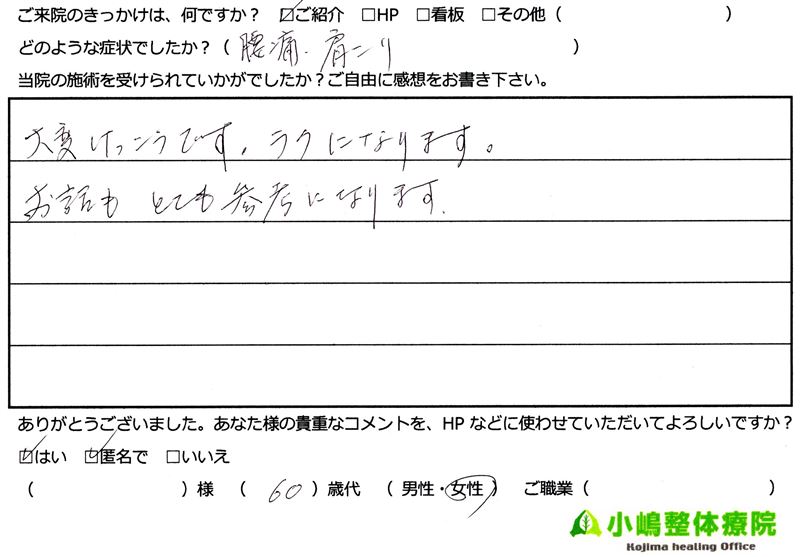 ご来院のきっかけは、何ですか？ ☑ご紹介 □HP □看板 □その他（ ）
どのような症状でしたか？（ 腰痛．肩こり ）
当院の施術を受けられていかがでしたか？ご自由に感想をお書き下さい。
大変けっこうです。ラクになります。
お話も とても参考になります．
ありがとうございました。あなた様の貴重なコメントを、HP などに使わせていただいてよろしいですか？
☑はい ☑匿名で □いいえ
（ ）様 （ 60 ）歳代 （ 男性・女性 ） ご職業（ ）
小嶋整体療院
Kojima healing Office